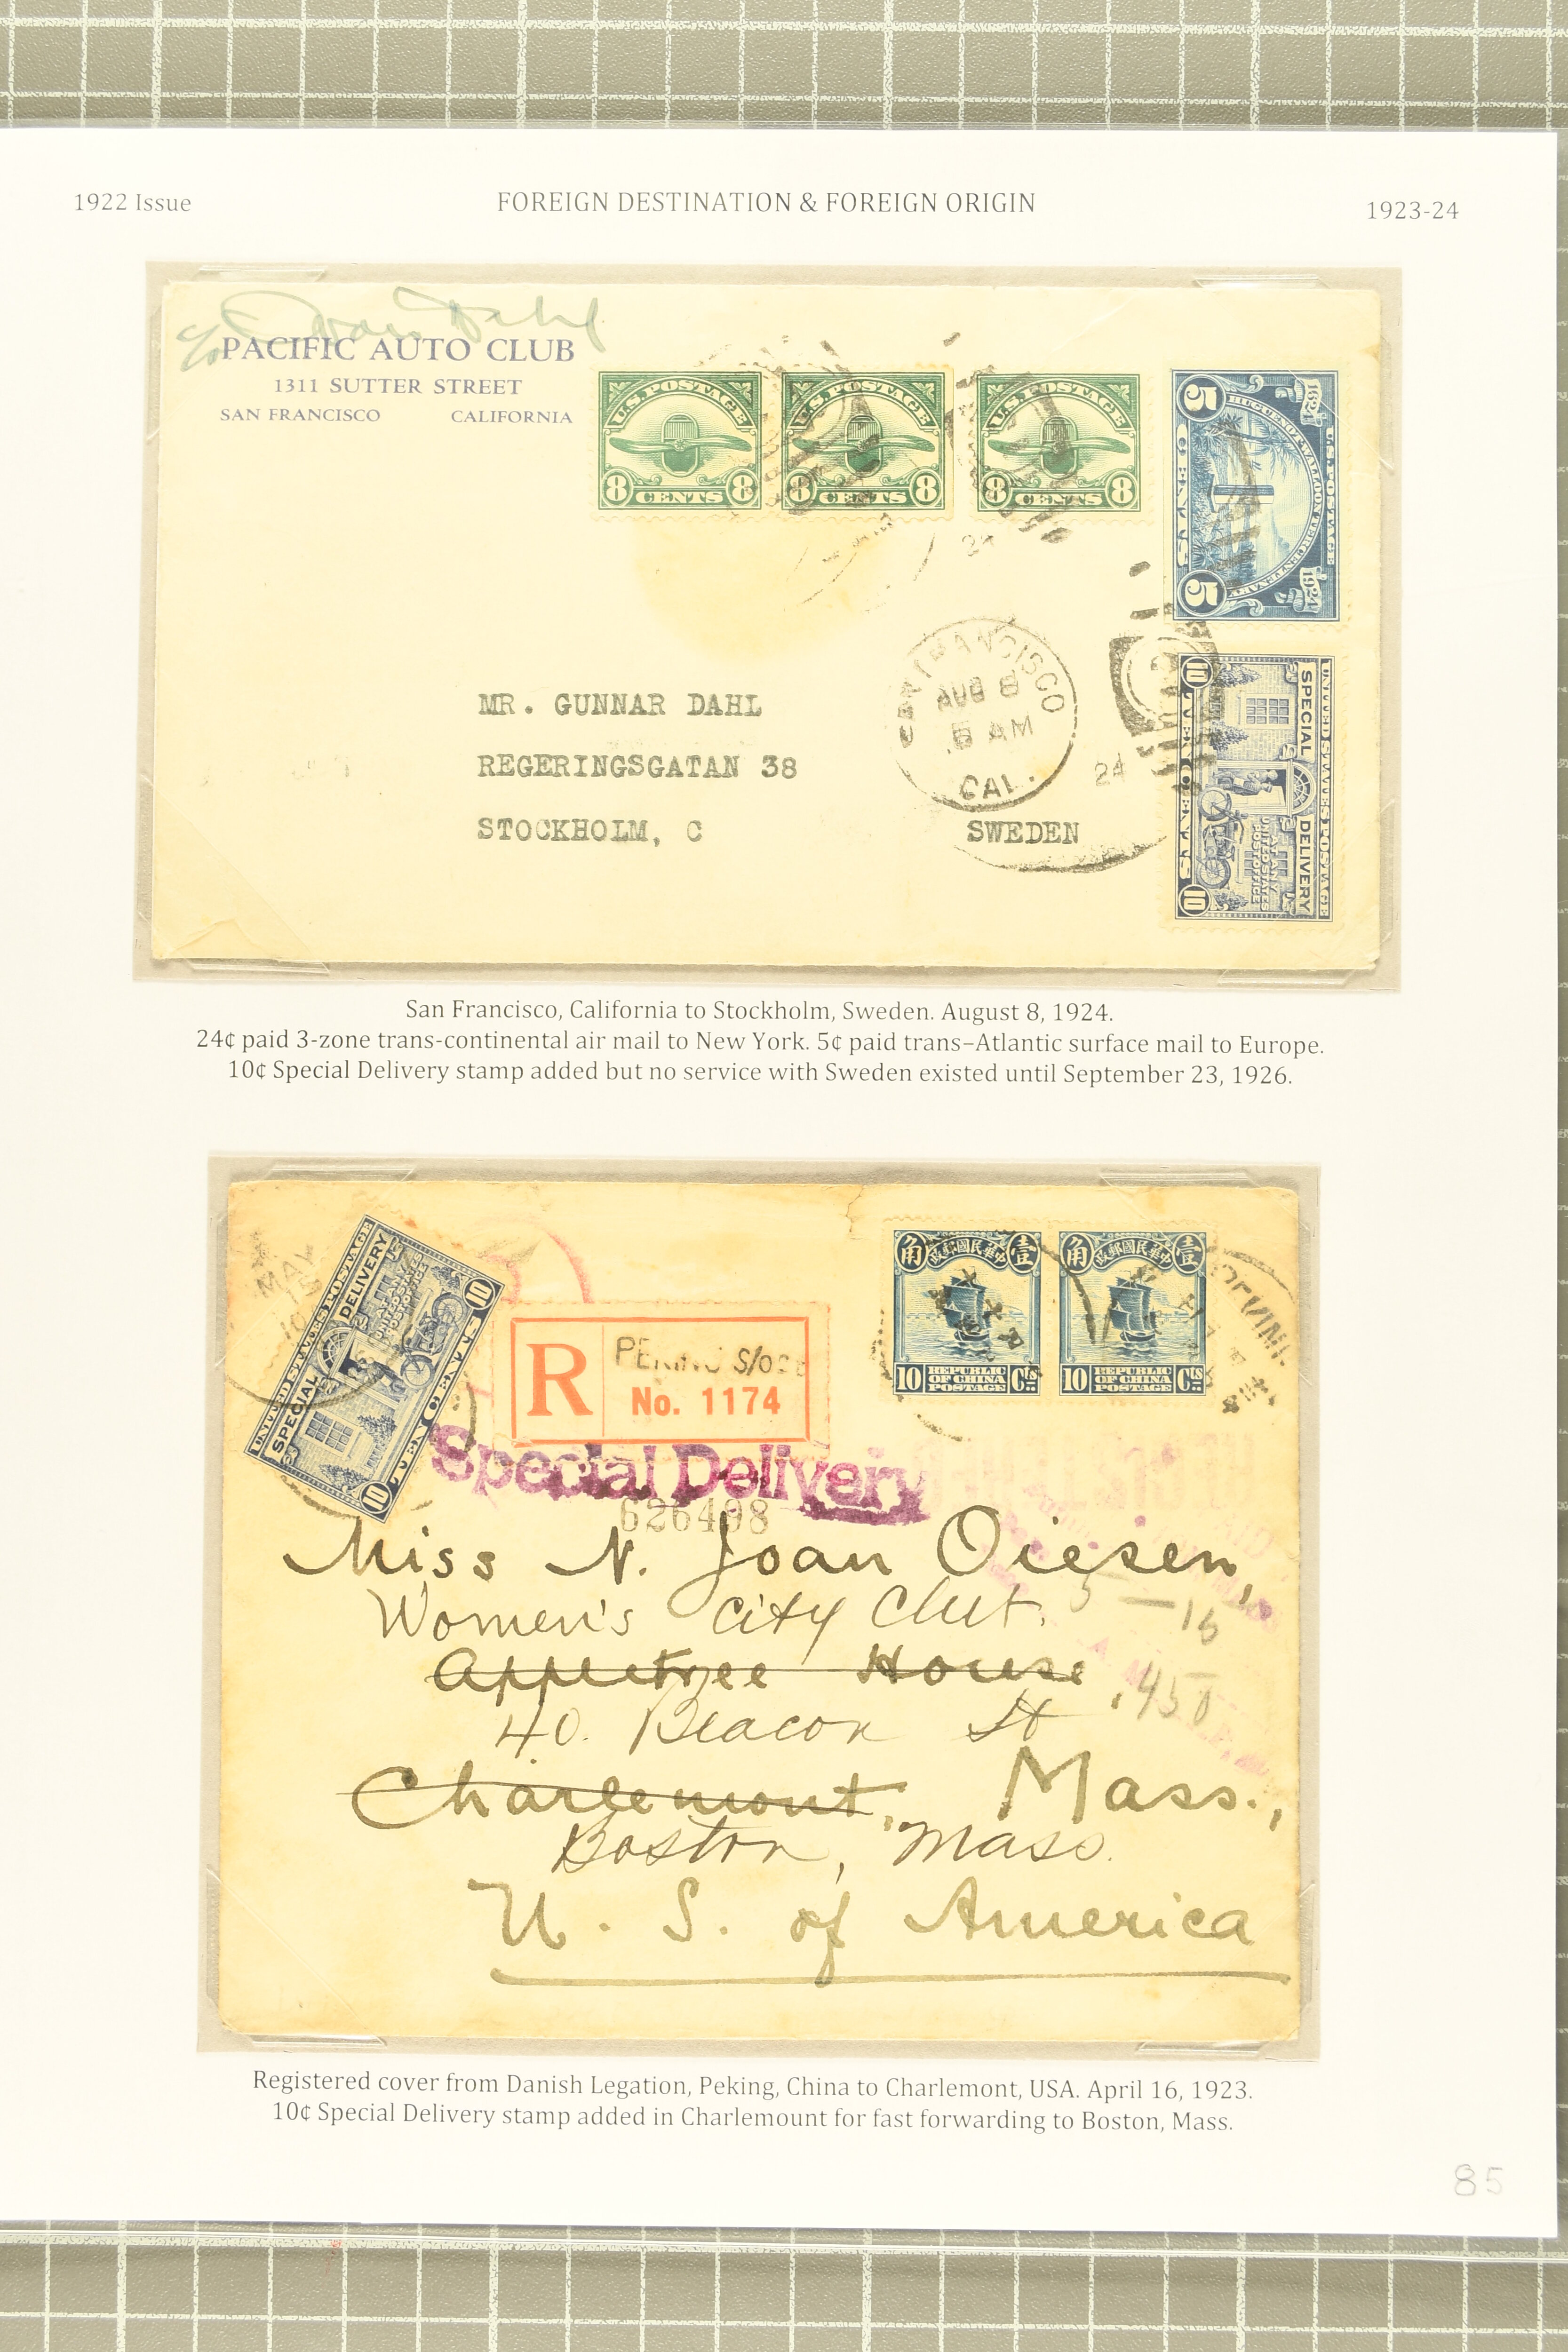 1922 Issue
FOREIGN DESTINATION & FOREIGN ORIGIN
1923-24
c/o Ivan Dahl
PACIFIC AUTO CLUB
1311 SUTTER STREET
SAN FRANCISCO CALIFORNIA
U.S. POSTAGE
8 CENTS 8
U.S. POSTAGE
8 CENTS 8
U.S. POSTAGE
8 CENTS 8
1624 U.S. POSTAGE 1924
HUGUENOT WALLOON TERCENTENARY
5 CENTS 5
SAN FRANCISCO
AUG 8
5 AM
24
CAL.
UNITED STATES POSTAGE
SPECIAL DELIVERY
AT ANY
UNITED STATES
POST OFFICE
10 TEN CENTS 10
MR. GUNNAR DAHL
REGERINGSGATAN 38
STOCKHOLM, C SWEDEN
San Francisco, California to Stockholm, Sweden. August 8, 1924.
24¢ paid 3-zone trans-continental air mail to New York. 5¢ paid trans–Atlantic surface mail to Europe.
10¢ Special Delivery stamp added but no service with Sweden existed until September 23, 1926.
MAY
15
10
UNITED STATES POSTAGE
SPECIAL DELIVERY
AT ANY
UNITED STATES
POST OFFICE
10 TEN CENTS 10
R
PEKING S/O
No. 1174
角 中華民國郵政 壹
10 REPUBLIC OF CHINA POSTAGE Cts
角 中華民國郵政 壹
10 REPUBLIC OF CHINA POSTAGE Cts
Special Delivery
626498
Miss N. Joan Oiesen,
Women's City Club.
5 – 15
Appletree House,
450
40. Beacon St
Charlemont, Mass.,
Boston, Mass.
U. S. of America
Registered cover from Danish Legation, Peking, China to Charlemont, USA. April 16, 1923.
10¢ Special Delivery stamp added in Charlemount for fast forwarding to Boston, Mass.
85